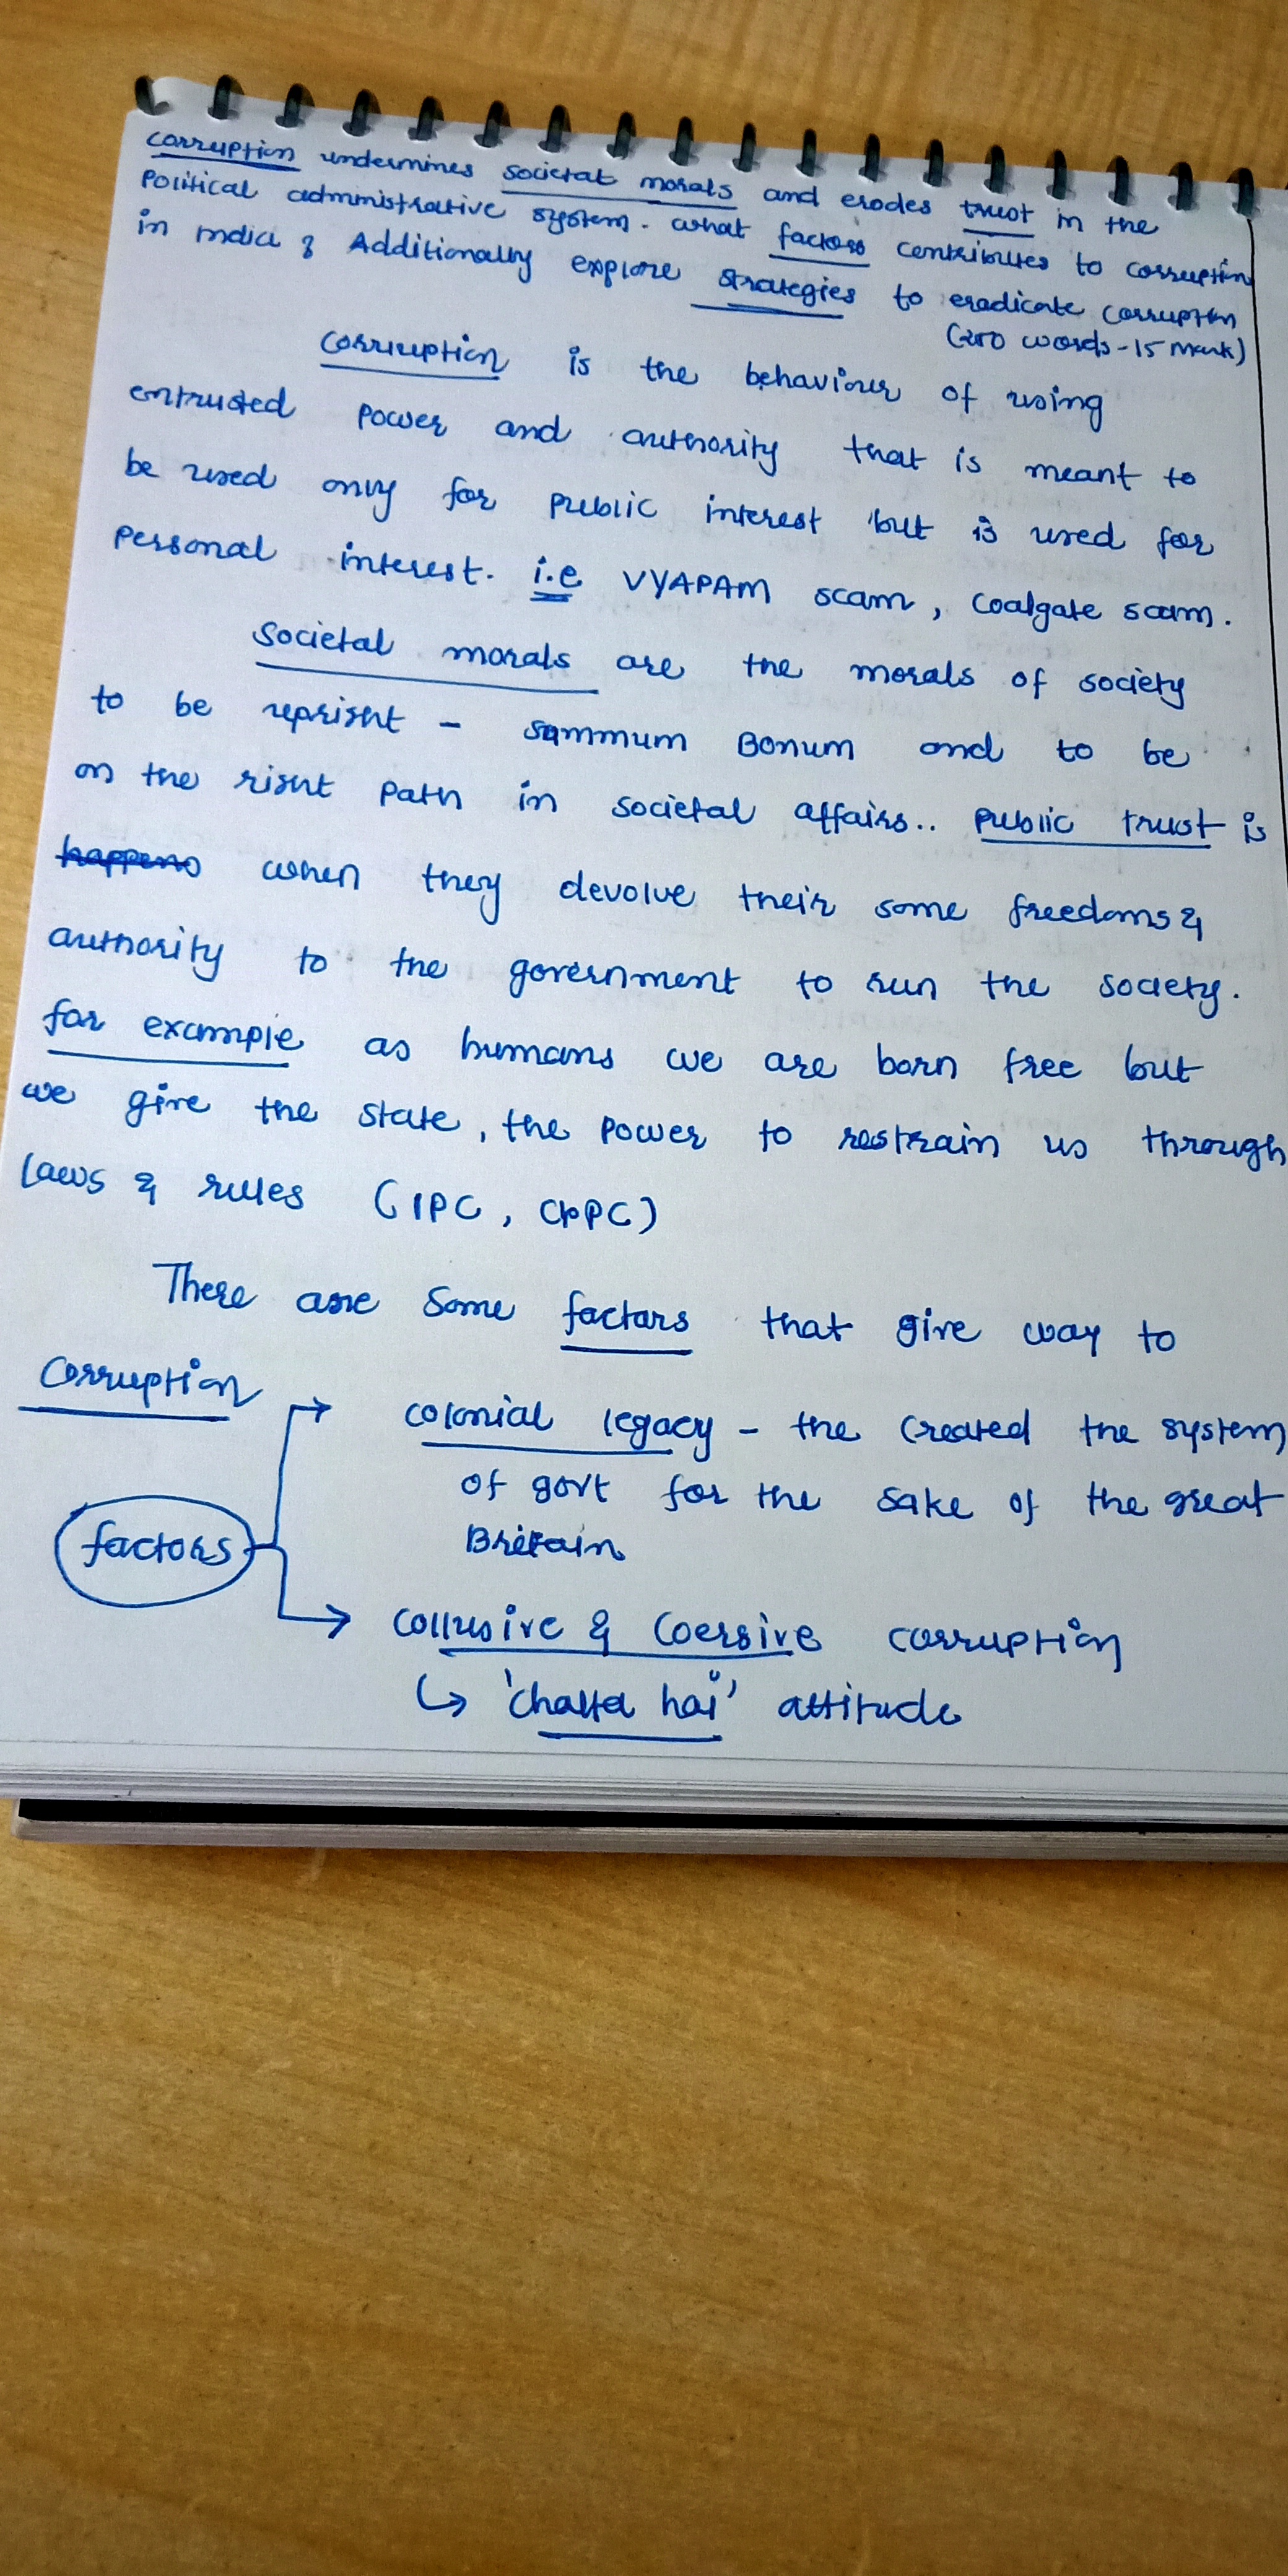 corruption undermines societal morals and erodes trust in the
Political administrative system. what factors contributes to corruption
in India? Additionally explore strategies to eradicate corruption
(250 words - 15 mark)
corruption is the behaviour of using
entrusted power and authority that is meant to
be used only for public interest but is used for
personal interest. i.e VYAPAM scam, Coalgate scam.
Societal morals are the morals of society
to be upright - summum Bonum and to be
on the right path in societal affairs.. public trust is
happens when they devolve their some freedoms &
authority to the government to run the society.
for example as humans we are born free but
we give the state, the power to restrain us through
laws & rules (IPC, CrPC)
There are some factors that give way to
Corruption
colonial legacy - the created the system
of govt for the sake of the great
Britain
factors
collusive & Coersive corruption
↳ 'chalta hai' attitude